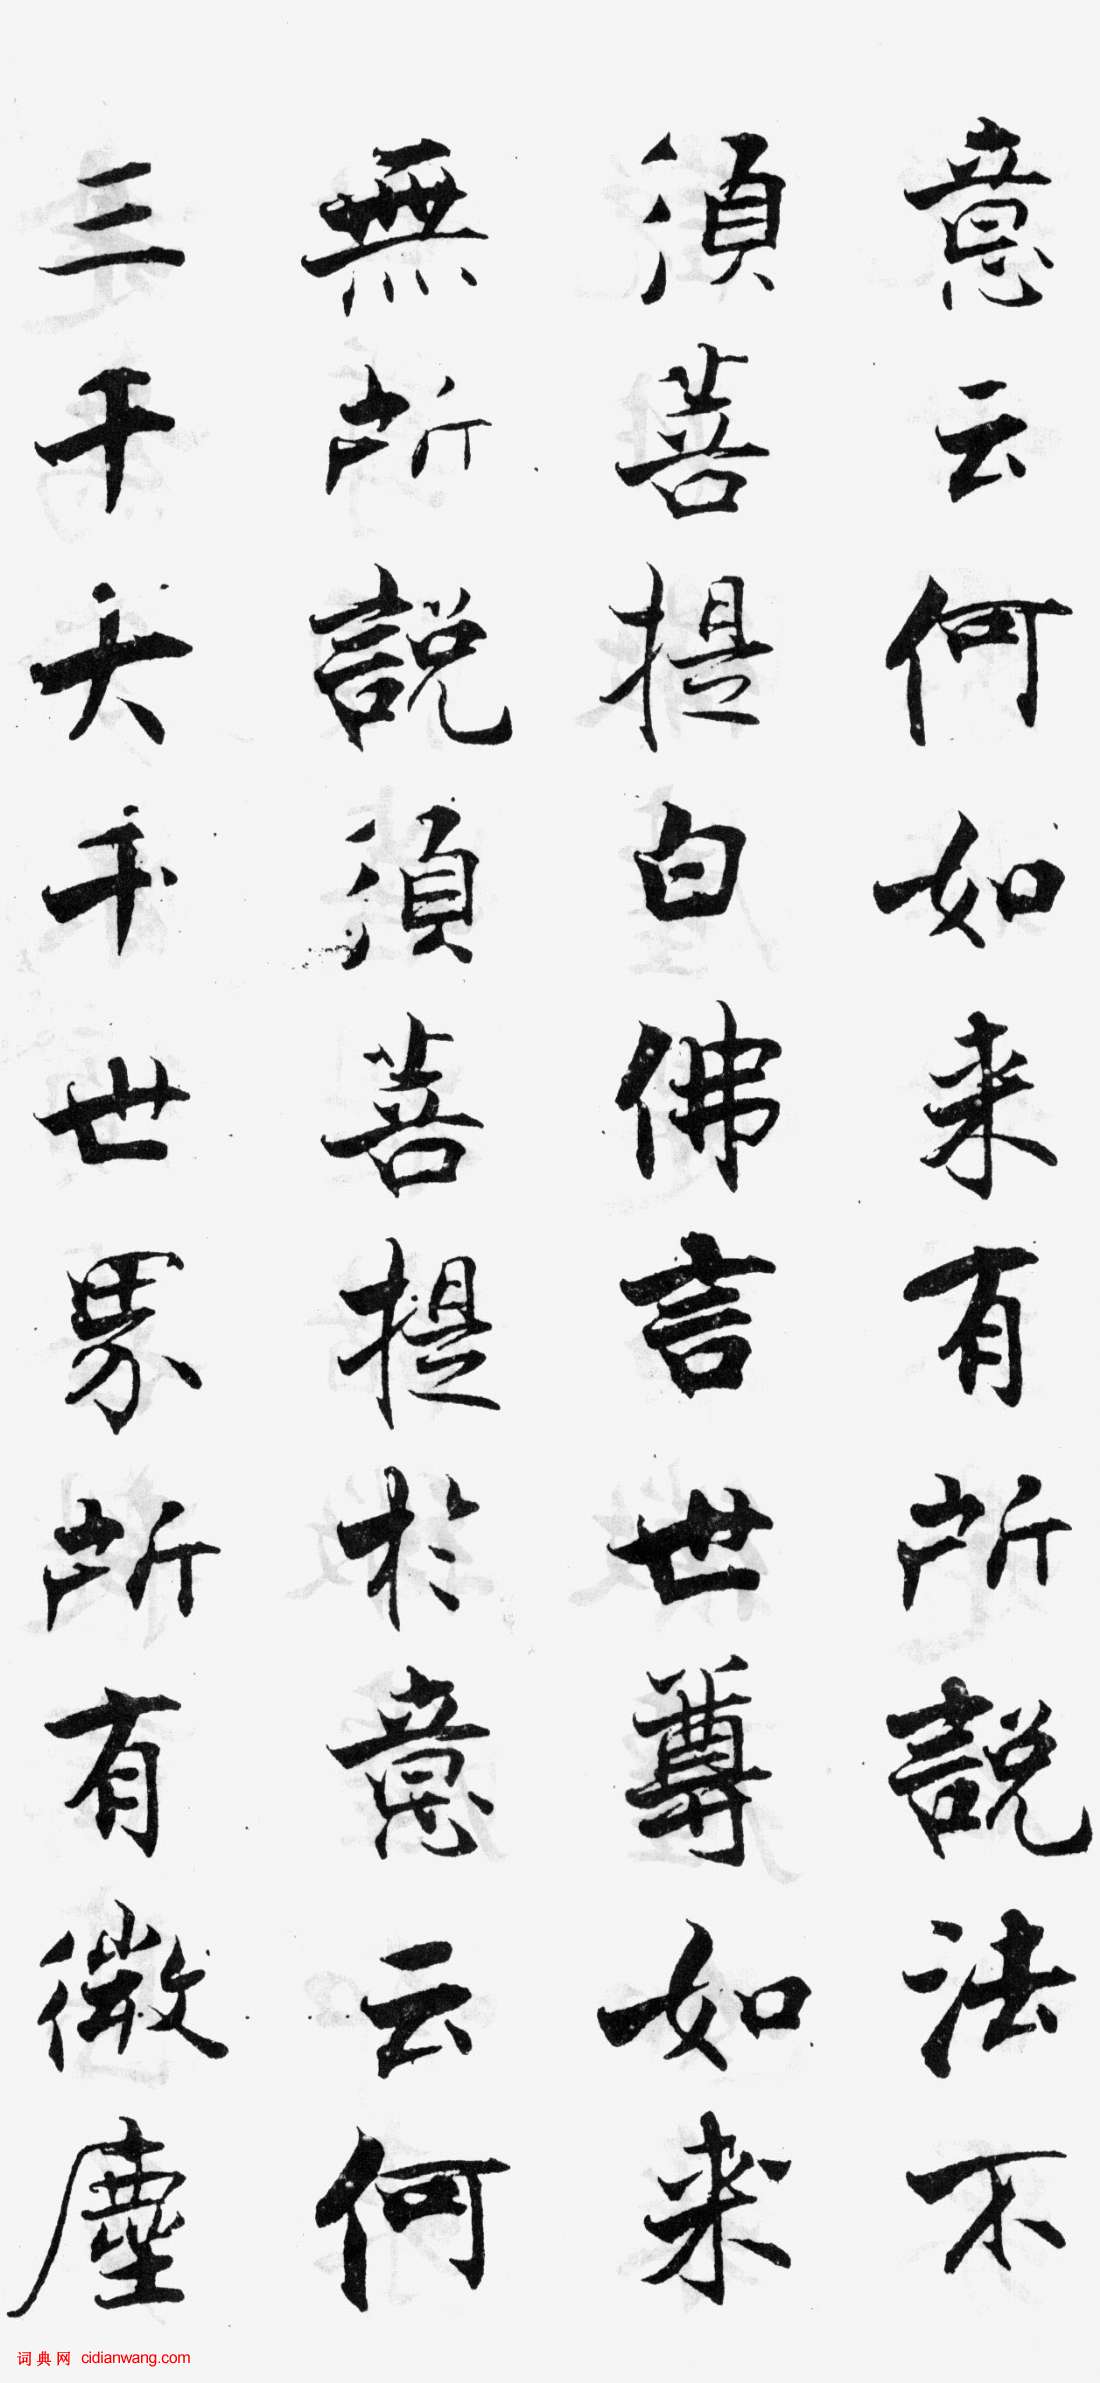 意云何如来有所說法不
須菩提白佛言世尊如来
無所說須菩提於意云何
三千大千世界所有微塵
词典网 cidianwang.com